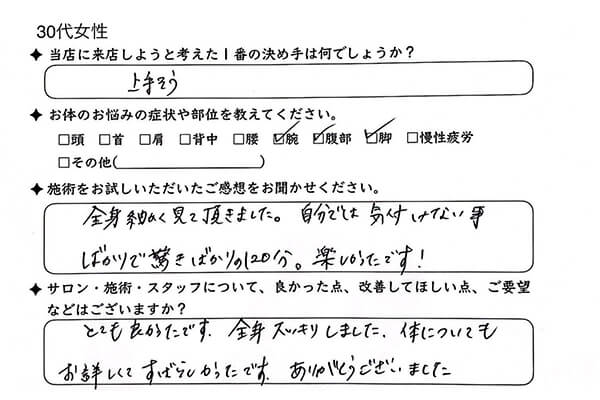 30代女性
✦ 当店に来店しようと考えた1番の決め手は何でしょうか?
上手そう
✦ お体のお悩みの症状や部位を教えてください。
□頭 □首 □肩 □背中 □腰 ☑腕 ☑腹部 ☑脚 □慢性疲労
□その他( )
✦ 施術をお試しいただいたご感想をお聞かせください。
全身細かく見て頂きました。自分では気付けない事
ばかりで驚きばかりの120分。楽しかったです!
✦ サロン・施術・スタッフについて、良かった点、改善してほしい点、ご要望
などはございますか?
とても良かったです。全身スッキリしました。体についても
お詳しくてすばらしかったです。ありがとうございました